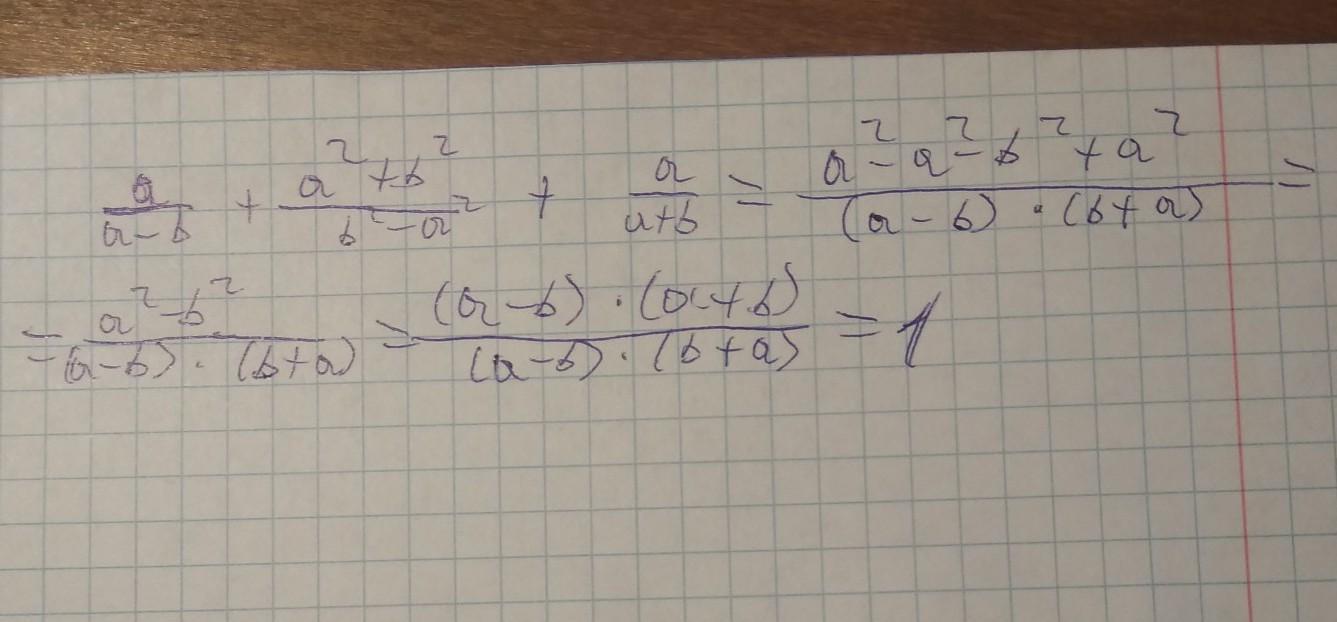 a/(a-b) + (a²+b²)/(b²-a²) + a/(a+b) = (a²-a²-b²+a²)/((a-b)·(b+a)) =
= (a²-b²)/((a-b)·(b+a)) = ((a-b)·(a+b))/((a-b)·(b+a)) = 1